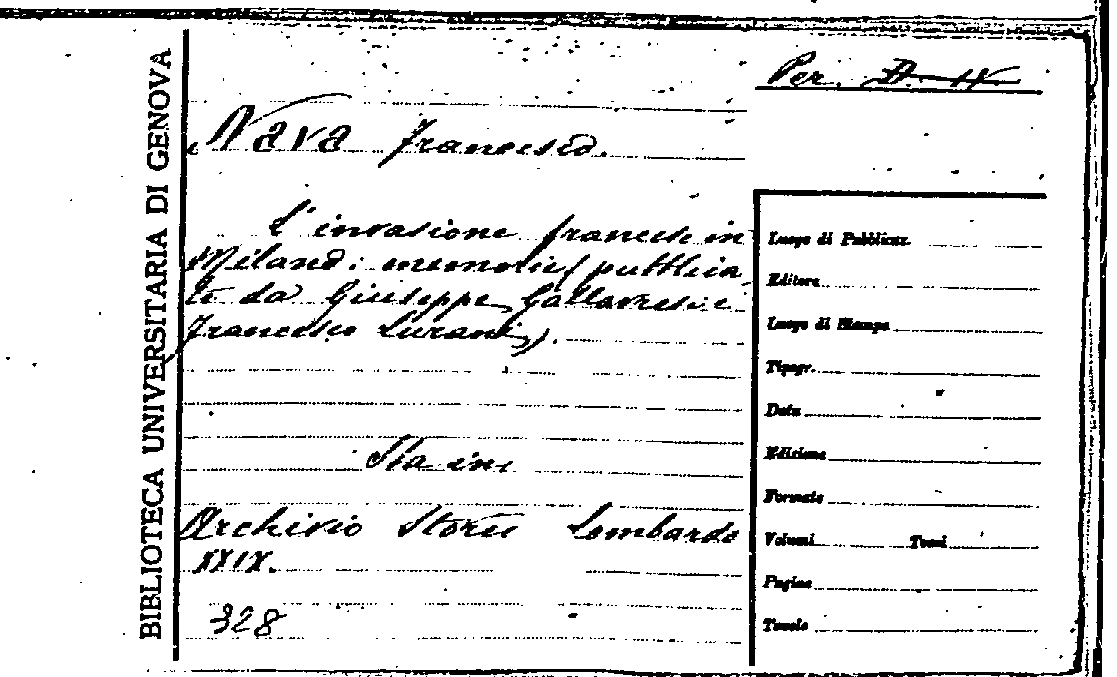 BIBLIOTECA UNIVERSITARIA DI GENOVA
Per. D. IX
Nava Francesco.
L'invasione francese in
Milano: memorie (pubblica
te da Giuseppe Gallavresi e
Francesco Lurani).
Sta in:
Archivio Storico Lombardo
XXIX.
328
Luogo di Pubblicaz.
Editore
Luogo di Stampa
Tipogr.
Data
Edizione
Formato
Volumi Tomi
Pagine
Tavole